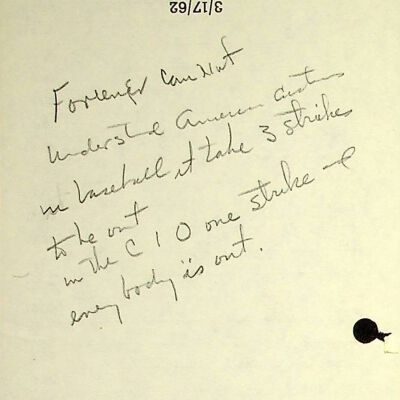 3/17/62
Foreigner Can Not
Understand American customs
in baseball it take 3 strikes
to be out
in the C I O one strike &
every body is out.